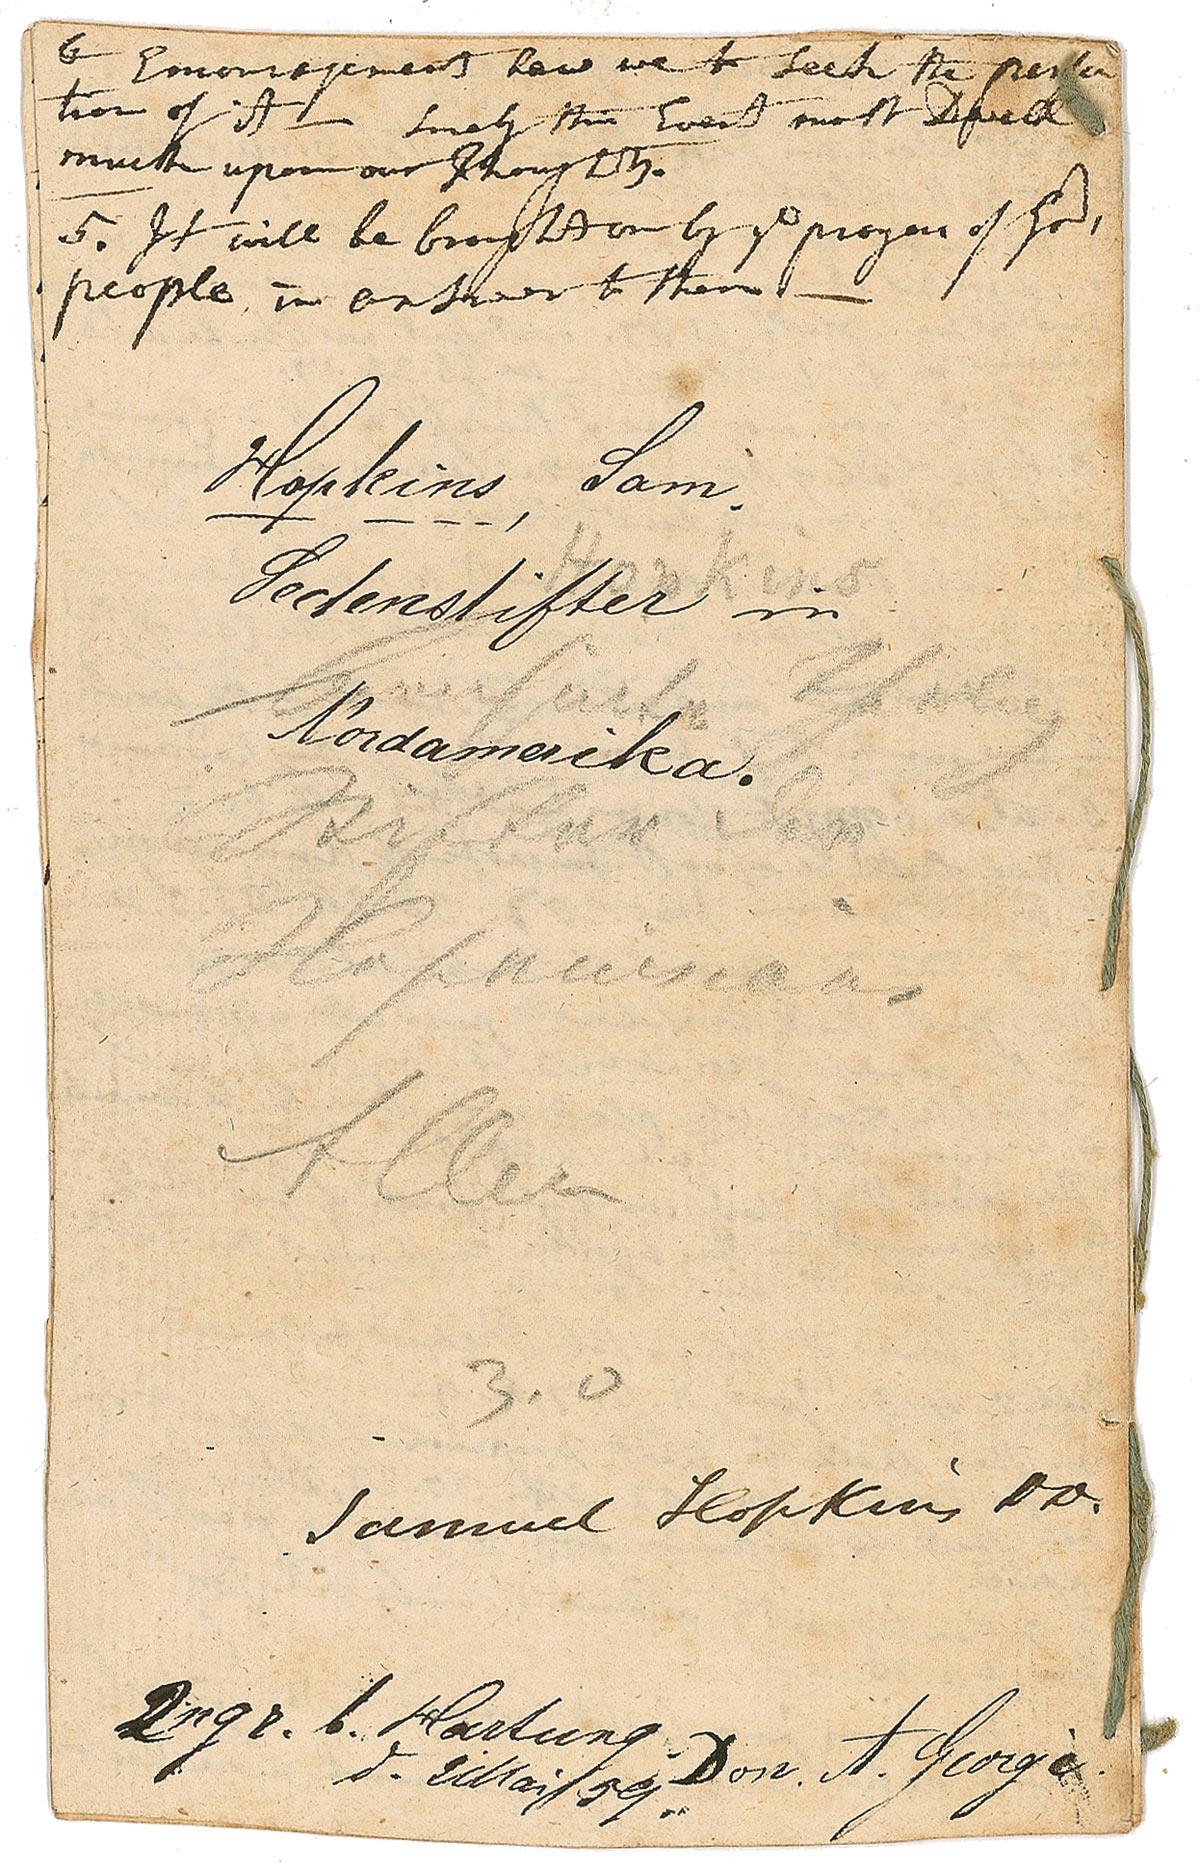 6 Encouragement have we to seek the perfec
tion of it — surely this Event must Dwell
much upon our Thoughts.
5. It will be brought on by ye prayers of God's
people, in answer to them —
Hopkins, Sam.
Hopkins
Sectenstifter in
Nordamerika.
Stifter der
Hopkinsians
Allen
3. 0
Samuel Hopkins DD.
b. Hartung
d. Mai/59. Don. A. George.